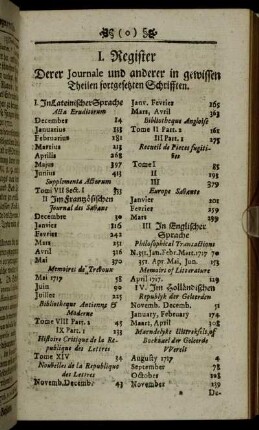 (o)
I. Register
Derer Journale und anderer in gewissen
Theilen fortgesetzten Schrifften.
I. In Lateinischer Sprache
Acta Eruditorum
Decembr 14
Januarius
Februarius
Martius 213
Aprilis 268
Majus 397
Junius
Supplementa Actorum
Tom. VII Sect. I
II Im Frantzösischen
Journal des Savans
Decembre 30
Janvier 216
Fevrier 242
Mars 251
Avril 316
Mai 370
Memoires de Trevoux
Mai 1717 58
Juin 90
Juillet 225
Bibliotheque Antienne &
Moderne
Tome VIII Part. 2 45
IX Part. 1 233
Histoire Critique de la Re-
publique des Lettres
Tome XIV 54
Nouvelles de la Republique
des Lettres
Novemb. Decemb. 43
Janv. Fevrier 265
Mars, Avril 363
Bibliotheque Angloise
Tome II Part. 2 161
III Part. 1 275
Recueil de Pieces fugiti-
ves
Tome I 85
II 193
III 379
Europe Savante
Janvier 201
Fevrier 259
Mars 299
III In Englischer
Sprache
Philosophical Transactions
N. 355. Jan. Febr. Mart. 1717 70
Memoirs of Litterature
April 1717. 129
IV. Im Holländischen
Republyk der Geleerden
Novemb. Decemb. 51
January, February 174
Maart, April 308
Maendelyke Uittreksels, of
Boekzael der Geleerde
VVerelt
Augusty 1717 4
September 78
October 218
November 239
De-